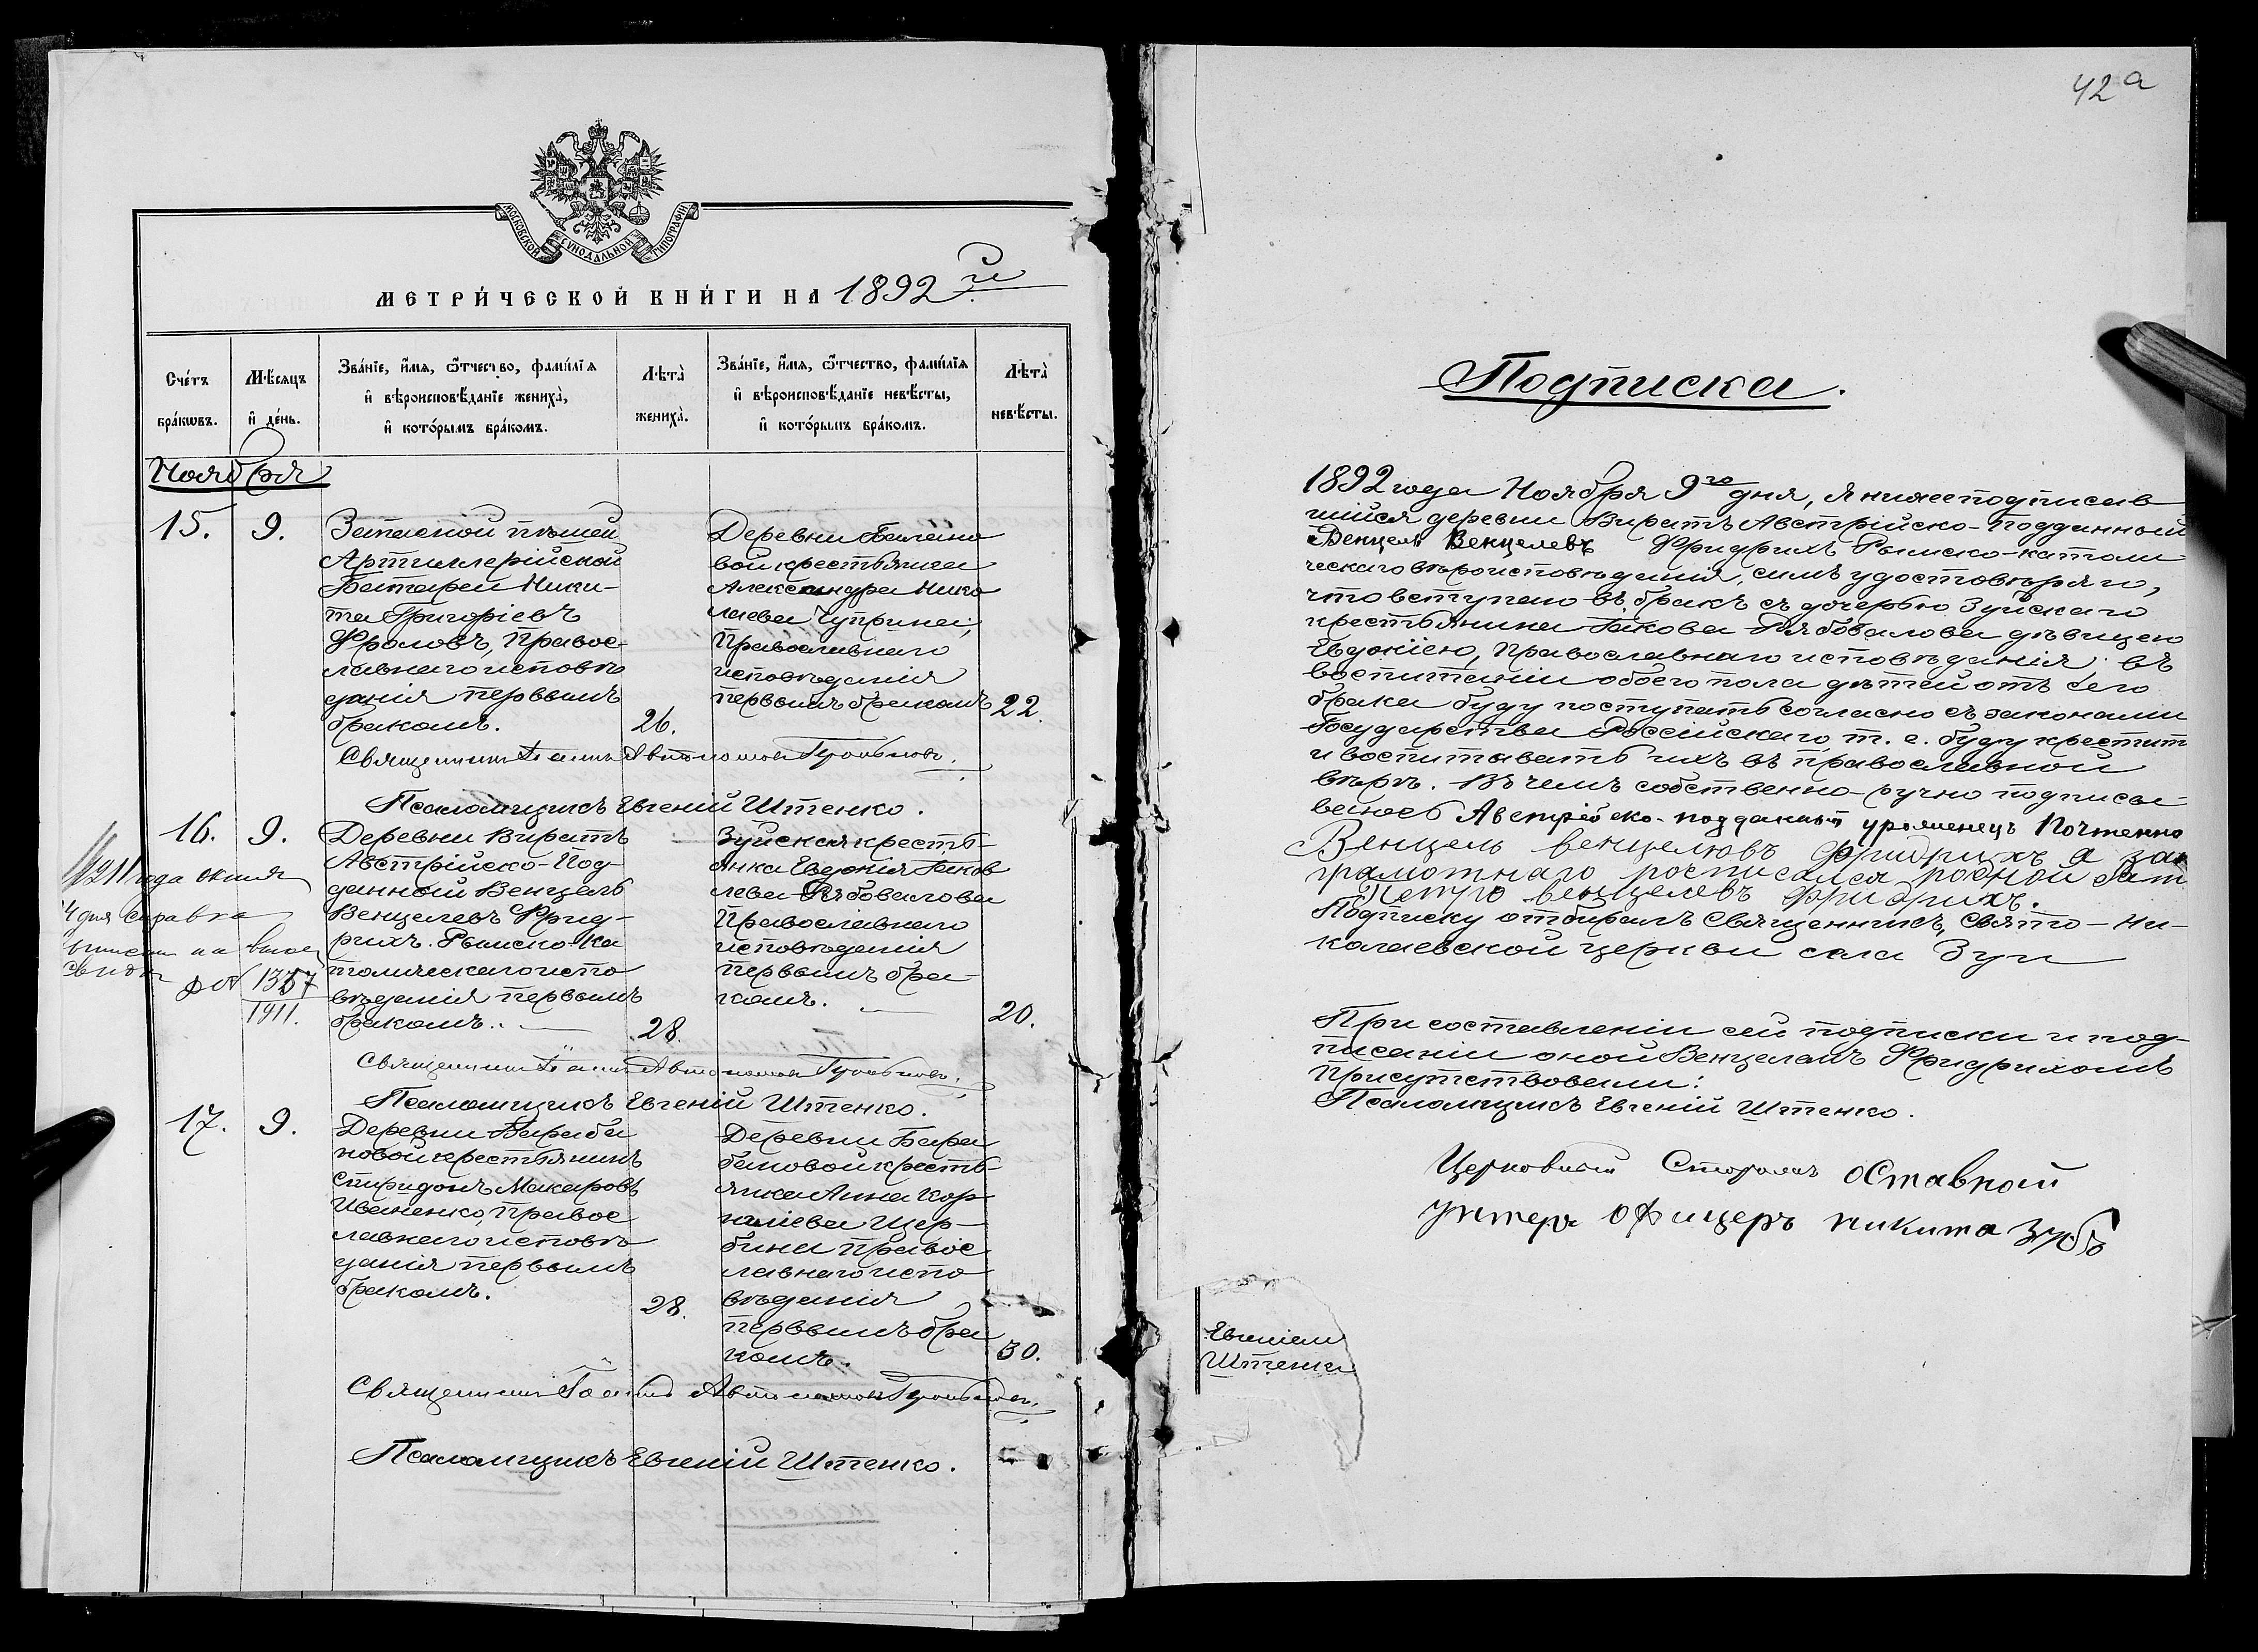 МОСКОВСКОЙ СѴНОДАЛЬНОЙ ТИПОГРАФІИ
МЕТРИ́ЧЕСКОЙ КНИ́ГИ НА 1892 й
Сче́тъ бра́кѡвъ.
Мѣ́сяцъ и҆ де́нь.
Зва́нїе, и҆́мя, ѻ҆́тчество, фами́лїя
и҆ вѣроисповѣ́данїе жениха̀,
и҆ кото́рымъ бра́комъ.
Лѣта̀ жениха̀.
Зва́нїе, и҆́мя, ѻ҆́тчество, фами́лїя
и҆ вѣроисповѣ́данїе невѣ́сты,
и҆ кото́рымъ бра́комъ.
Лѣта̀ невѣ́сты.
Ноября
15. 9.
Запасной пѣшей
Артиллерійской
Батареи Ники-
та Григоріевъ
Фроловъ, Правос-
лавнаго исповѣ
данія первымъ
бракомъ.
26.
Деревни
вой крестьянка
Александра Нико
лаева Чуприна,
Православнаго
исповѣданія
первымъ бракомъ
22.
Священникъ Автономов
Псаломщикъ Евгеній Штенко.
16. 9.
Деревни Виратъ
Австрійско-Под-
данный Венцель
Венцелевъ Фрид-
рихъ. Римско-Ка
толическаго испо
вѣданія первымъ
бракомъ.
28.
Зуйская кресть-
янка Евдокія Яков
лева Рябовалова
Православнаго
исповѣданія
первымъ бра-
комъ.
20.
1911 года
4 дня справка
№ 1357
1911.
Священникъ Автономов
Псаломщикъ Евгеній Штенко.
17. 9.
Деревни Бараба
новой крестьянинъ
Спиридонъ Макаровъ
Иваненко, Правос
лавнаго исповѣ
данія первымъ
бракомъ.
28.
Деревни Бара
бановой кресть-
янка Анна Кор
наліева Щер-
бина Правос
лавнаго испо
вѣданія
первымъ бра
комъ.
30.
Священникъ Автономов
Псаломщикъ Евгеній Штенко.
42 а
Подписка.
1892 года Ноября 9го дня, я нижеподписав
шійся деревни Виратъ Австрійско-подданный
Венцель Венцелевъ Фридрихъ Римско-католи-
ческаго вѣроисповѣданія, симъ удостовѣряю,
что вступаю въ бракъ съ дочерью Зуйскаго
крестьянина Якова Рябовалова дѣвицею
Евдокіею, Православнаго исповѣданія. въ
воспитаніи обоего пола дѣтей отъ сего
брака буду поступать согласно съ законами
Государства Россійскаго т. е. буду крестит
и воспитывать ихъ въ православной
вѣрѣ. Въ чемъ собственно-ручно подписы
ваюсь Австрійско-подданый уроженецъ
Венцель венцеловъ Фридрихъ а за
грамотнаго росписался родной
Петро венцелевъ Фридрихъ.
Подписку отбиралъ Священникъ, Свято-Ни-
колаевской церкви села Зуи
При составленіи сей подписки и под-
писаніи оной Венцеламъ Фридрихомъ
присутствовали:
Псаломщикъ Евгеній Штенко.
Церковный Сторож оставной
унтеръ офицеръ никита Зубъ
Евгеніем
Штенки